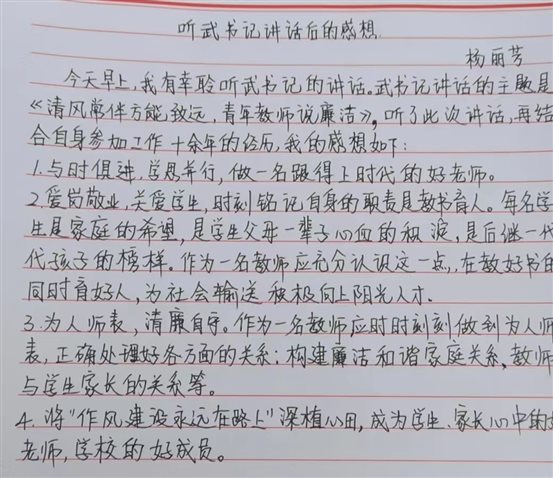 听武书记讲话后的感想
杨丽芳
今天早上,我有幸聆听武书记的讲话。武书记讲话的主题是
《清风常伴方能致远,青年教师说廉洁》,听了此次讲话,再结
合自身参加工作十余年的经历,我的感想如下:
1.与时俱进,学思并行,做一名跟得上时代的好老师。
2.爱岗敬业,关爱学生,时刻铭记自身的职责是教书育人。每名学
生是家庭的希望,是学生父母一辈子心血的积淀,是后继一代
代孩子的榜样。作为一名教师应充分认识这一点,在教好书的
同时育好人,为社会输送积极向上阳光人才.
3.为人师表,清廉自守。作为一名教师应时时刻刻做到为人师
表,正确处理好各方面的关系:构建廉洁和谐家庭关系,教师
与学生家长的关系等。
4.将“作风建设永远在路上”深植心田,成为学生、家长心中的
老师,学校的好成员。